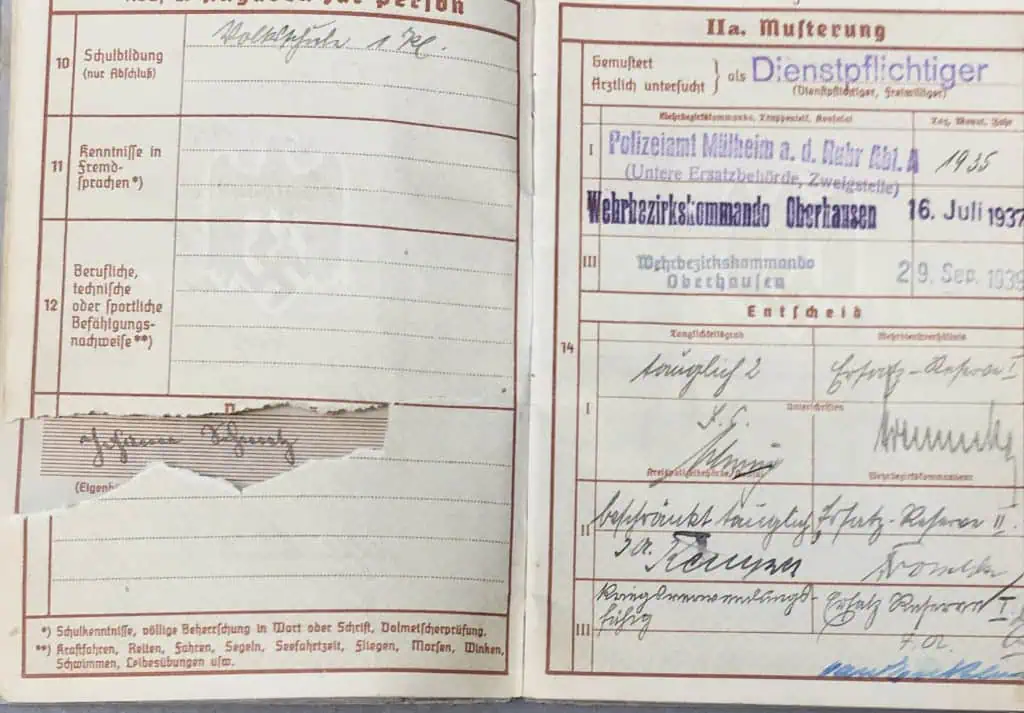 Angaben zur Person
10 Schulbildung
(nur Abschluß)
Volksschule 1 Kl.
11 Kenntnisse in
Fremd-
sprachen*)
12 Berufliche,
technische
oder sportliche
Befähigungs-
nachweise**)
(Eigenh
*) Schulkenntnisse, völlige Beherrschung in Wort oder Schrift, Dolmetscherprüfung.
**) Kraftfahren, Reiten, Fahren, Segeln, Seefahrtzeit, Fliegen, Morsen, Winken,
Schwimmen, Leibesübungen usw.
IIa. Musterung
Gemustert
Ärztlich untersucht } als Dienstpflichtiger
(Dienstpflichtiger, Freiwilliger)
Wehrbezirkskommando, Truppenteil, Konsulat
Tag, Monat, Jahr
I Polizeiamt Mülheim a. d. Ruhr Abt. A 1935
(Untere Ersatzbehörde, Zweigstelle)
Wehrbezirkskommando Oberhausen 16. Juli 1937
III Wehrbezirkskommando
Oberhausen
29. Sep. 1939
Entscheid
14
Tauglichkeitsgrad Wehrdienstverhältnis
I tauglich 2 Ersatz-Reserve I
Unterschriften
Wehrbezirkskommandeur
II beschränkt tauglich Ersatz-Reserve II.
III Kriegsverwendungs-
fähig
Ersatz Reserve I